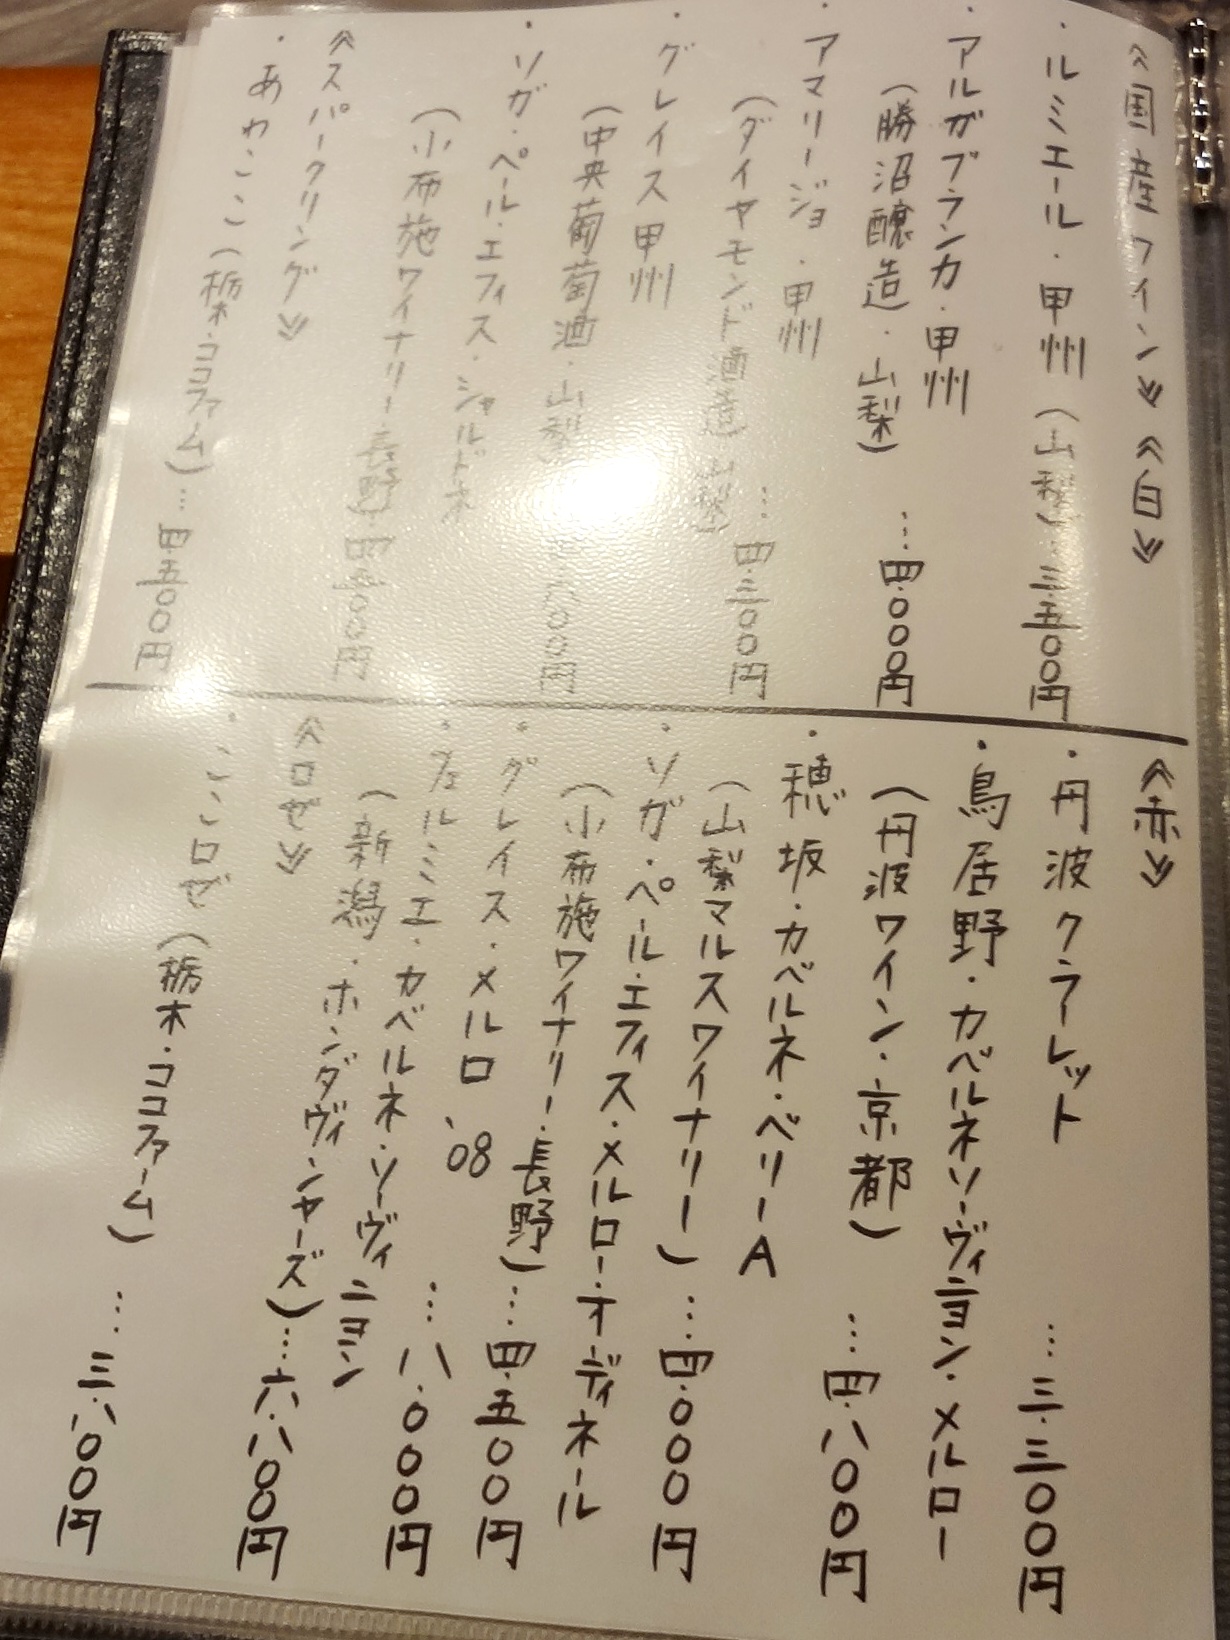 ≪国産ワイン≫ ≪白≫
・ルミエール・甲州(山梨)…三.五〇〇円
・アルガブランカ・甲州
(勝沼醸造・山梨) …四.〇〇〇円
・アマリージョ・甲州
(ダイヤモンド酒造・山梨) …四.三〇〇円
・グレイス甲州
(中央葡萄酒・山梨) 〇〇円
・ソガ・ペール・エフィス・シャルドネ
(小布施ワイナリー・長野)四.五〇〇円
≪スパークリング≫
・あわここ(栃木・ココファーム)…四.五〇〇円
≪赤≫
・丹波クラーレット …三.三〇〇円
・鳥居野・カベルネソーヴィニヨン・メルロー
(丹波ワイン・京都) …四.八〇〇円
・穂坂・カベルネ・ベリーA
(山梨マルスワイナリー)…四.〇〇〇円
・ソガ・ペール・エフィス・メルロー・オーディネール
(小布施ワイナリー・長野)…四.五〇〇円
・グレイス・メルロ '08 …八.〇〇〇円
・フェルミエ・カベルネ・ソーヴィニヨン
(新潟・ホンダヴィンヤーズ)…六.八〇〇円
≪ロゼ≫
・こころゼ(栃木・ココファーム) …三.八〇〇円